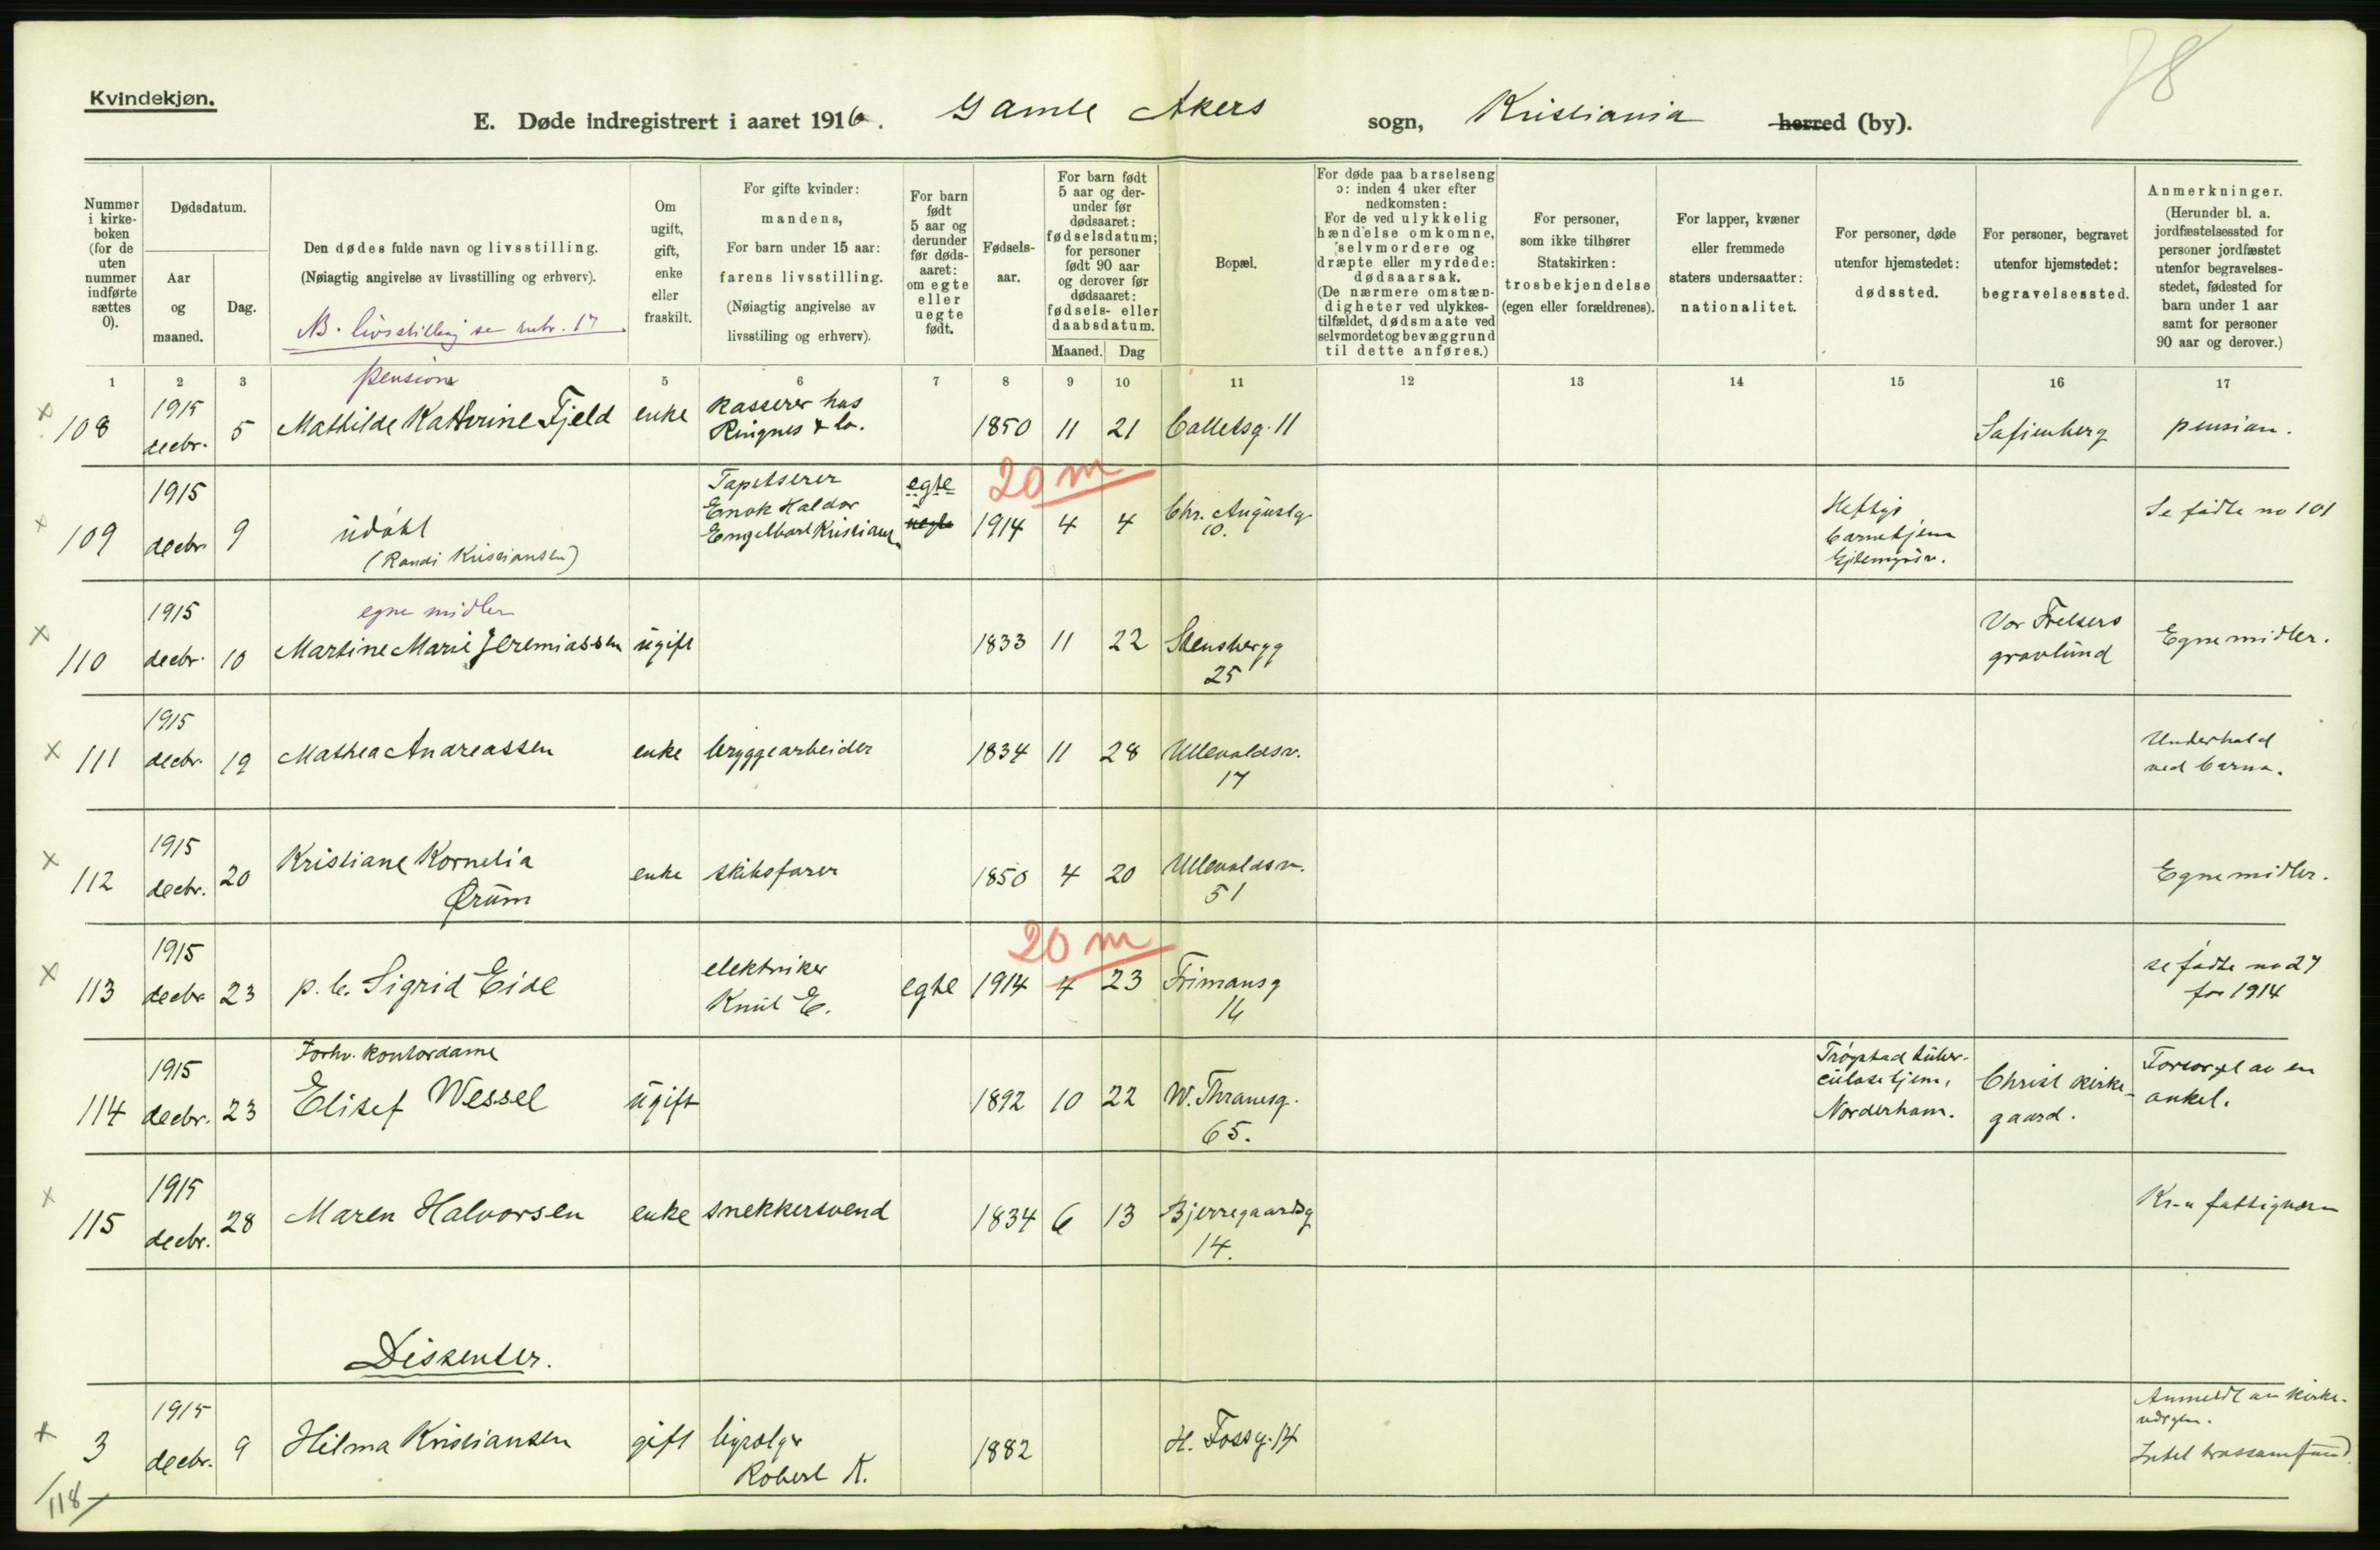 78
Kvindekjøn.
E. Døde indregistrert i aaret 1916. Gamle Akers sogn, Kristiania herred (by).
Nummer i kirke-boken (for de uten nummer indførte sættes 0).
Dødsdatum.
Aar og maaned.
Dag.
Den dødes fulde navn og livsstilling.
(Nøiagtig angivelse av livsstilling og erhverv).
NB. livsstilling se rubr. 17
Om ugift, gift, enke eller fraskilt.
For gifte kvinder: mandens,
For barn under 15 aar: farens livsstilling.
(Nøiagtig angivelse av livsstiling og erhverv).
For barn født 5 aar og derunder før døds-aaret: om egte eller uegte født.
Fødsels-aar.
For barn født 5 aar og der-under før dødsaaret: fødselsdatum; for personer født 90 aar og derover før dødsaaret: fødsels- eller daabsdatum.
Maaned. Dag
Bopæl.
For døde paa barselseng ɔ: inden 4 uker efter nedkomsten:
For de ved ulykkelig hændelse omkomne, selvmordere og dræpte eller myrdede: dødsaarsak.
(De nærmere omstæn-digheter ved ulykkes-tilfældet, dødsmaate ved selvmord og bevæggrund til dette anføres.)
For personer, som ikke tilhører Statskirken: trosbekjendelse (egen eller forældrenes).
For lapper, kvæner eller fremmede staters undersaatter: nationalitet.
For personer, døde utenfor hjemstedet: dødssted.
For personer, begravet utenfor hjemstedet: begravelsessted.
Anmerkninger.
(Herunder bl. a. jordfæstelsessted for personer jordfæstet utenfor begravelses-stedet, fødested for barn under 1 aar samt for personer 90 aar og derover.)
1 2 3 5 6 7 8 9 10 11 12 13 14 15 16 17
pension
x 108 1915 decbr. 5 Mathilde Kathrine Fjeld enke kasserer hos Ringnes & Co. 1850 11 21 Colletsg. 11 Sofienberg pension.
20 m
x 109 1915 decbr 9 udøbt (Randi Kristiansen) Tapetserer Enok Haldor Engelbart Kristiansen egte uegte 1914 4 4 Chr. Augustg 10. Heftys barnehjem Se fødte no 101
egne midler
x 110 1915 decbr. 10 Martine Marie Jeremiassen ugift 1833 11 22 Stensbergg 25 Vor Frelsers gravlund Egne midler.
x 111 1915 decbr. 19 Mathea Andreassen enke bryggearbeider 1834 11 28 Ullevoldsv. 17 Underhold ved barna.
x 112 1915 decbr. 20 Kristiane Kornelia Ørum enke skibsfører 1850 4 20 Ullevoldsv. 51 Egne midler.
20 m
x 113 1915 decbr 23 p. b. Sigrid Eide elektriker Knut E. egte 1914 4 23 Frimansg 16 se fødte no 27 for 1914
Forhv. kontordame
x 114 1915 decbr. 23 Elisef Wessel ugift 1892 10 22 W. Thranesg. 65. Trøgstad tuber-culosehjem, Norderham. Christ kirke-gaard. Forsørget av en onkel.
x 115 1915 decbr. 28 Maren Halvorsen enke snekkersvend 1834 6 13 Bjerregaardsg 14. Kr-a fattigvæsen
Dissenter.
x 3 1915 decbr. 9 Hilma Kristiansen gift Robert K. 1882 H. Fossg. 14 Anmeldt av kirke- Intet trossamfund.
118